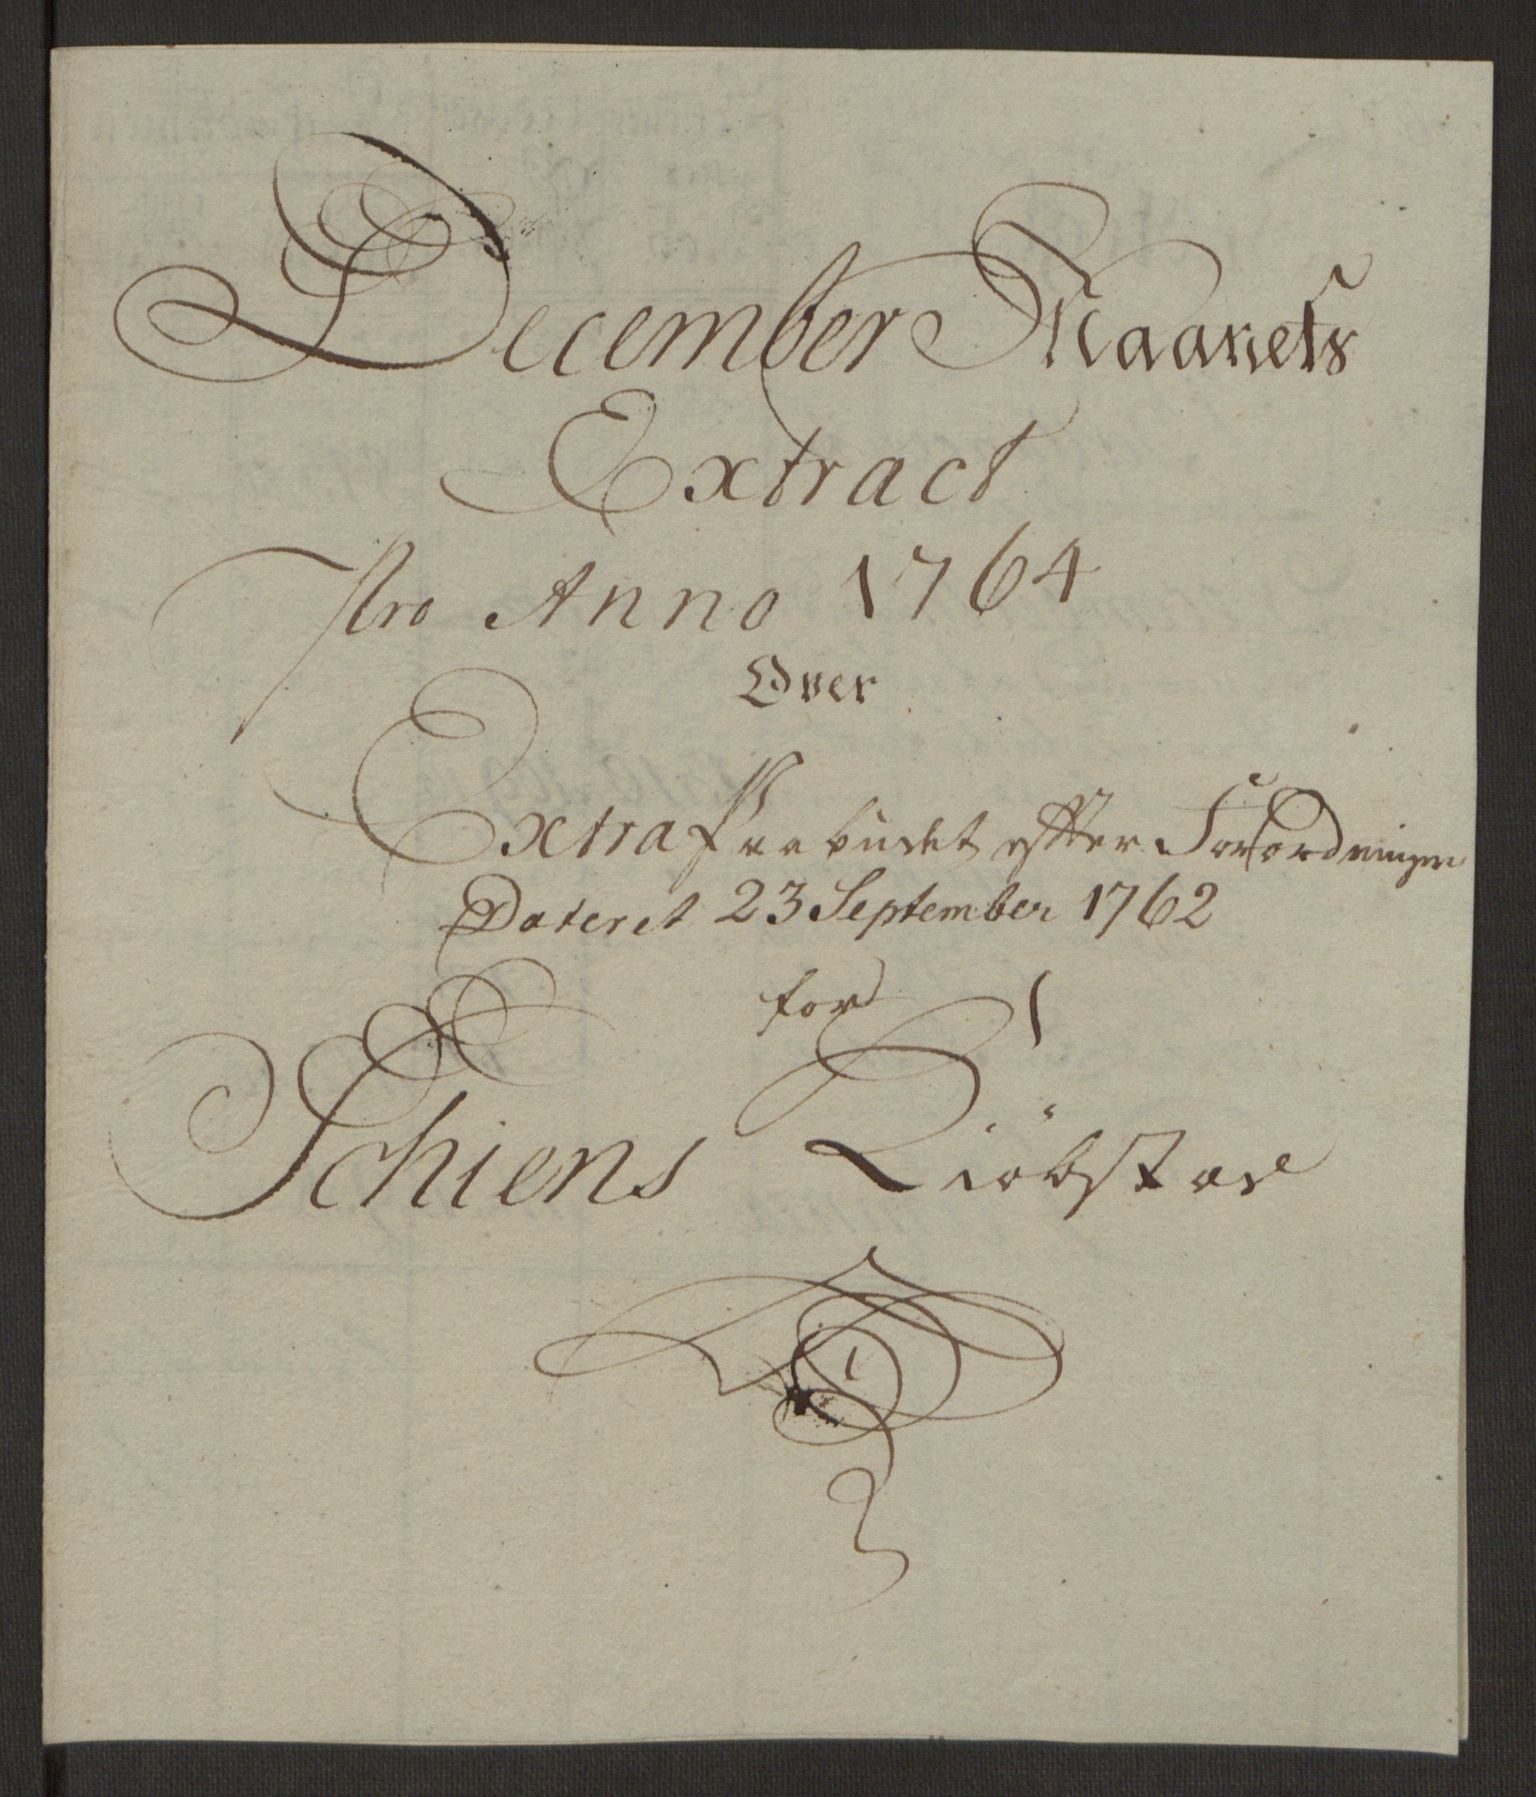 December Maanets
Extract
Pro Anno 1764
Over
Extra Paabudet efter Forordningen
Dateret 23 September 1762
for
Schiens Kiöbstæd